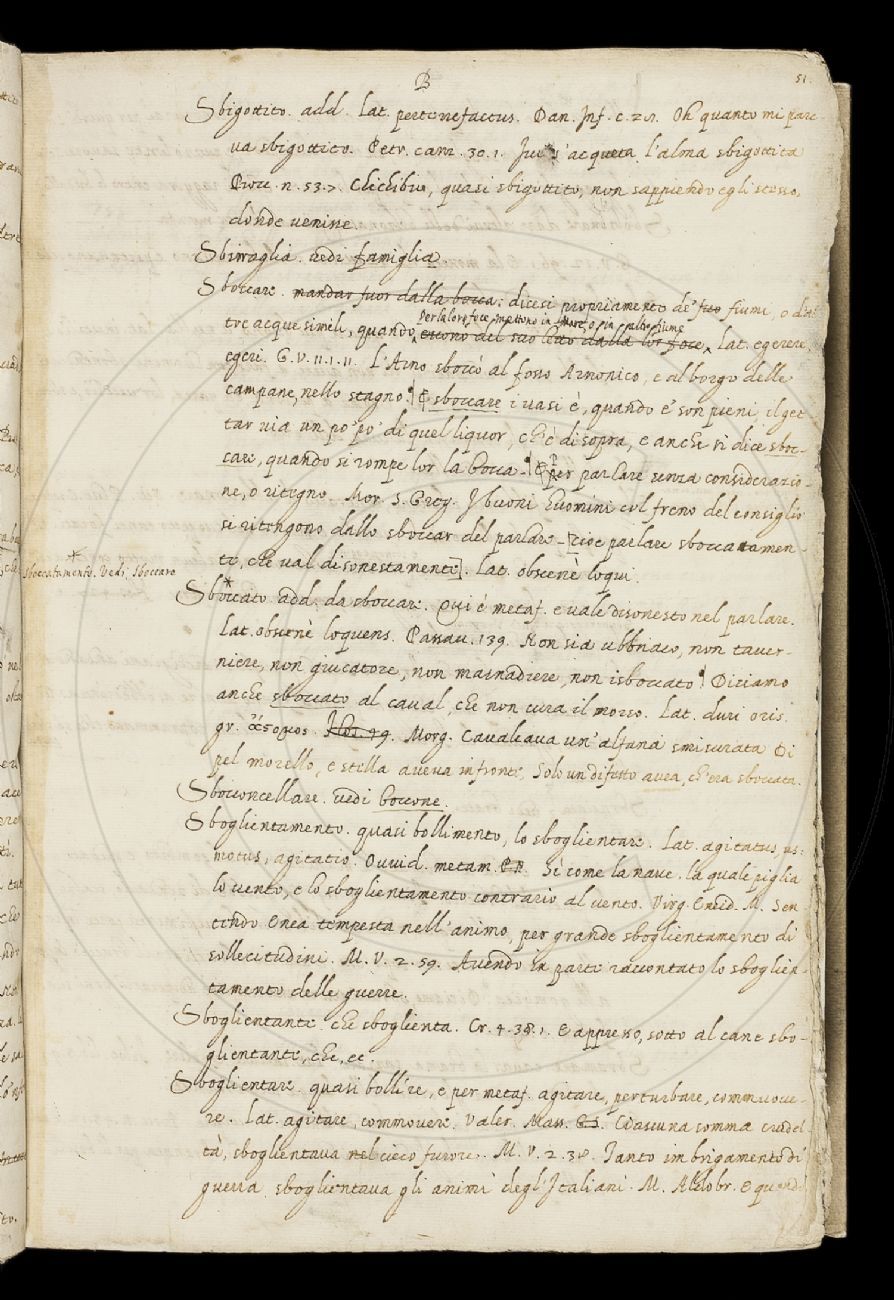 B
51.
Sbigottito. add. Lat. perterrefactus. Dan. Inf. c. 24. Oh quanto mi pare-
va sbigottito. Petr. canz. 30. 1. s'acqueta l'alma sbigottita
Bocc. n. 53. 7. Chichibio, quasi sbigottito, non sappiendo egli stesso,
donde venisse.
Sbirraglia. vedi famiglia.
Sboccare. mandar fuor dalla bocca: dicesi propriamente de' fiumi, o d'al-
Per la loro foce mettono in Mare, o in altro fiume
tre acque simili, quando escono del suo letto dalla lor foce, Lat. egerere,
egeri. G. V. 11. 1. 11. L'Arno sboccò al fosso Arnonico, e al borgo delle
campane, nello stagno. E sboccare i vasi è, quando e' son pieni, il get-
tar via un po' po' di quel liquor, ch'è di sopra, e anche si dice sboc-
care, quando si rompe lor la bocca. per parlare senza considerazio-
ne, o ritegno. Mor. S. Greg. I buoni huomini col freno del consiglio
si ritengono dallo sboccar del parlare. [cioè parlare sboccatamen-
te, che val disonestamente]. Lat. obscenè loqui.
* Sboccatamento. Vedi Sboccare
Sboccato. add. da sboccare. Qui è metaf. e vale disonesto nel parlare.
Lat. obscenè loquens. Passav. 139. Non sia ubbriaco, non taver-
niere, non giucatore, non masnadiere, non isboccato. Diciamo
anche sboccato al caval, che non cura il morso. Lat. duri oris.
gr. ἄστομος. Morg. Cavalcava un'alfana smisurata Di
pel morello, e stella aveva in fronte, Solo un difetto avea, ch'era sboccata.
Sbocconcellare. vedi boccone.
Sboglientamento. quasi bollimento, lo sboglientare. Lat. agitatus, us:
motus, agitatio. Ovvid. metam. Sì come la nave, la quale piglia
lo vento, e lo sboglientamento contrario al vento. Virg. Eneid. M. Sen-
tendo Enea tempesta nell'animo, per grande sboglientamento di
sollecitudini. M. V. 2. 59. Avendo in parte raccontato lo sboglien-
tamento delle guerre.
Sboglientante. che sboglienta. Cr. 4. 38. 1. E appresso, sotto al cane sbo-
glientante, che, ec.
Sboglientare. quasi bollire, e per metaf. agitare, perturbare, commuove-
re. Lat. agitare, commovere. Valer. Mass. Ciascuna somma crudel-
tà, sboglientava nel cieco furore. M. V. 2. 38. Tanto imbrigamento di
guerra sboglientava gli animi degl'Italiani. M. Aldobr. E quando